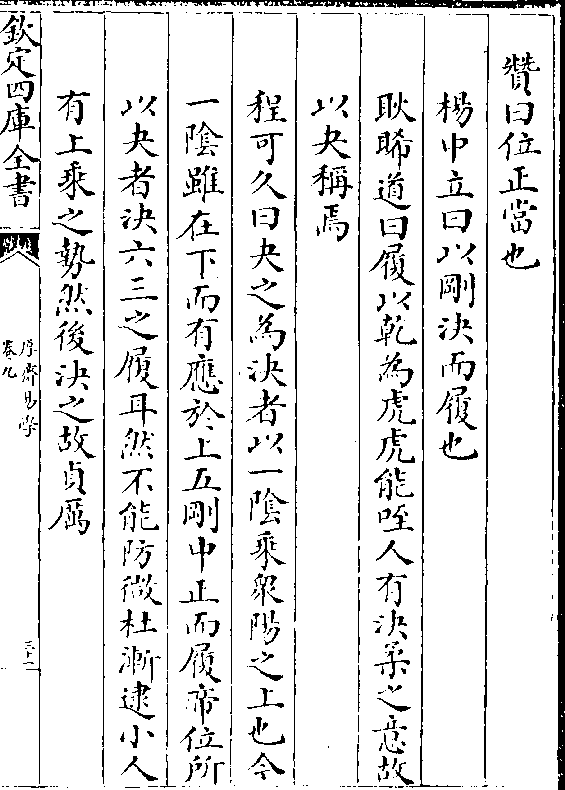 贊曰位正當也
楊中立曰以剛決而履也
耿睎道曰履以乾為虎虎能咥人有決柔之意故
以夬稱焉
程可久曰夬之為決者以一陰乘衆陽之上也今
一陰雖在下而有應於上五剛中正而履帝位所
以夬者決六三之履耳然不能防微杜漸逮小人
有上乘之勢然後決之故貞厲
欽定四庫全書
厚齋易學
卷九